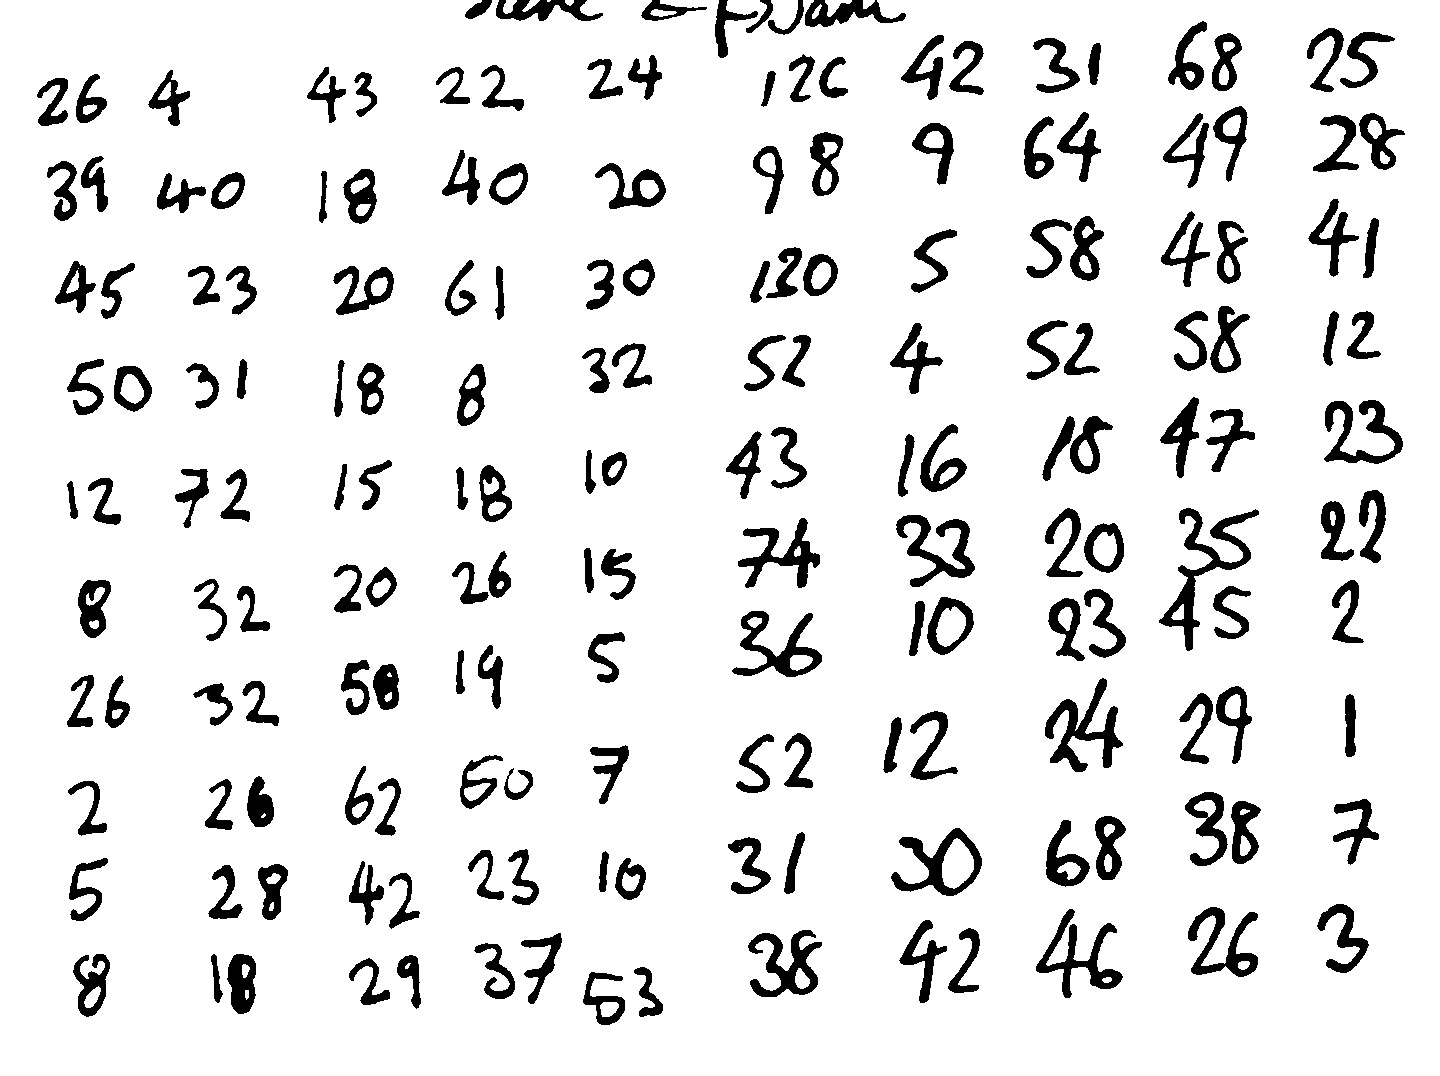 26 4 43 22 24 126 42 31 68 25
39 40 18 40 20 98 9 64 49 28
45 23 20 61 30 130 5 58 48 41
50 31 18 8 32 52 4 52 58 12
12 72 15 18 10 43 16 18 47 23
8 32 20 26 15 74 33 20 35 22
26 32 58 19 5 36 10 23 45 2
2 26 62 50 7 52 12 24 29 1
5 28 42 23 10 31 30 68 38 7
8 18 29 37 53 38 42 46 26 3